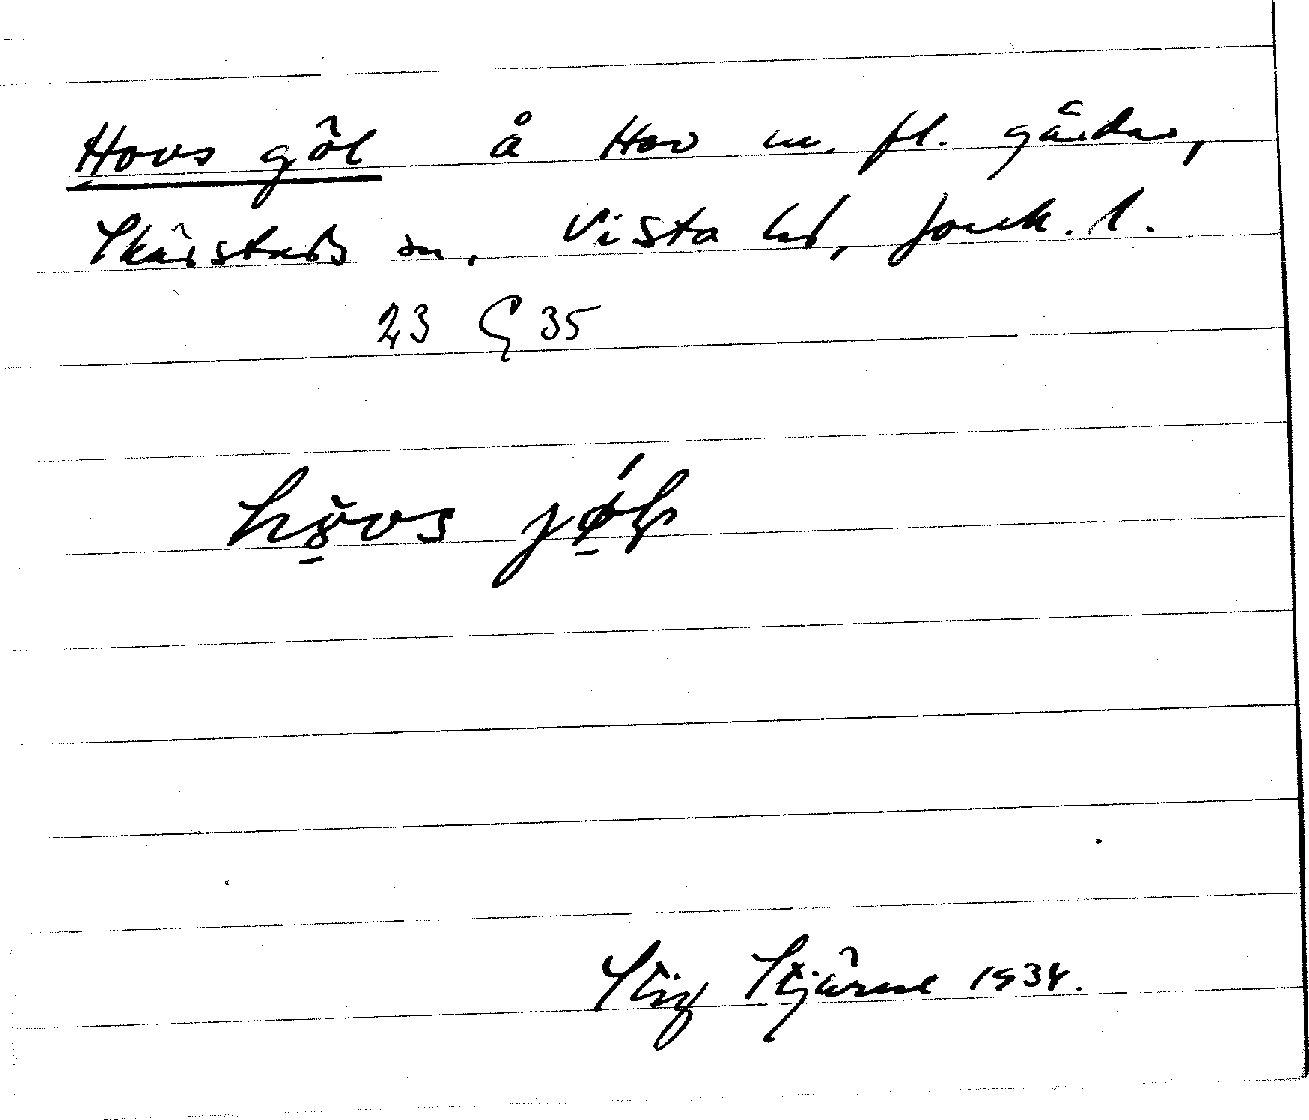 Hovs göl å Hov m. fl. gårdar,
Skärstads sn, Vista hd, Jönk. l.
23 G 35
Stig Stjärne 1934.